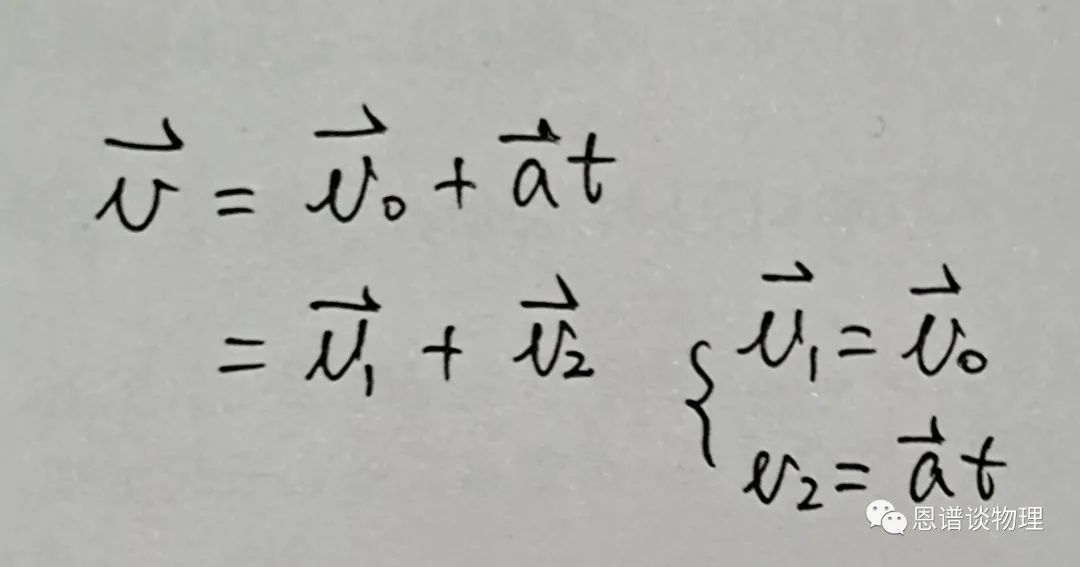 $\vec{v} = \vec{v}_0 + \vec{a}t$
$= \vec{v}_1 + \vec{v}_2$ $\begin{cases} \vec{v}_1 = \vec{v}_0 \\ v_2 = \vec{a}t \end{cases}$
恩谱谈物理